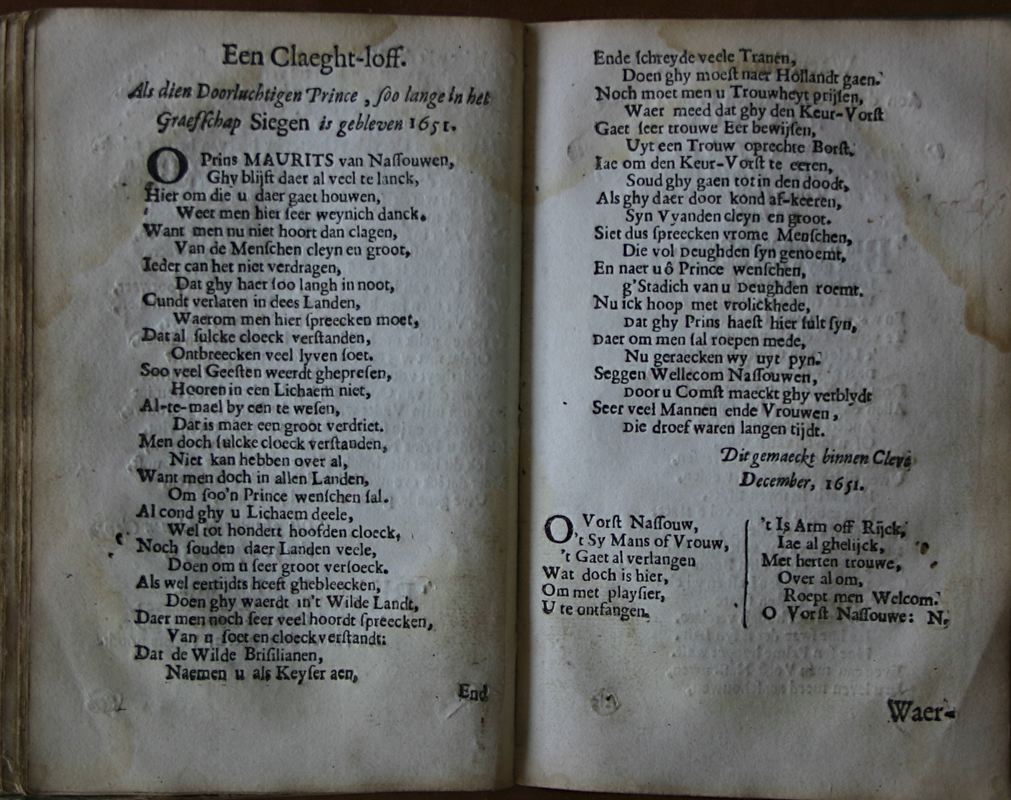 Een Claeght-loff.
Als dien Doorluchtigen Prince, soo lange in het
Graefschap Siegen is gebleven 1651.
O Prins MAURITS van Nassouwen,
Ghy blijft daer al veel te lanck,
Hier om die u daer gaet houwen,
Weet men hier seer weynich danck.
Want men nu niet hoort dan clagen,
Van de Menschen cleyn en groot,
Ieder can het niet verdragen,
Dat ghy haer soo langh in noot,
Cundt verlaten in dees Landen,
Waerom men hier spreecken moet,
Dat al sulcke cloeck verstanden,
Ontbreecken veel lyven soet.
Soo veel Geesten weerdt ghepresen,
Hooren in een Lichaem niet,
Al-te-mael by een te wesen,
Dat is maer een groot verdriet.
Men doch sulcke cloeck verstanden,
Niet kan hebben over al,
Want men doch in allen Landen,
Om soo'n Prince wenschen sal.
Al cond ghy u Lichaem deele,
Wel tot hondert hoofden cloeck,
Noch souden daer Landen veele,
Doen om u seer groot versoeck.
Als wel eertijdts heeft ghebleecken,
Doen ghy waerdt in't Wilde Landt,
Daer men noch seer veel hoordt spreecken,
Van u soet en cloeck verstandt:
Dat de Wilde Brisilianen,
Naemen u als Keyser aen,
End
Ende schreyde veele Tranen,
Doen ghy moest naer Hollandt gaen.
Noch moet men u Trouwheyt prijsen,
Waer meed dat ghy den Keur-Vorst
Gaet seer trouwe Eer bewijsen,
Uyt een Trouw oprechte Borst.
Iae om den Keur-Vorst te eeren,
Soud ghy gaen tot in den doodt,
Als ghy daer door kond af-keeren,
Syn Vyanden cleyn en groot.
Siet dus spreecken vrome Menschen,
Die vol Deughden syn genoemt,
En naer u ô Prince wenschen,
g'Stadich van u Deughden roemt.
Nu ick hoop met vrolickhede,
Dat ghy Prins haest hier sult syn,
Daer om men sal roepen mede,
Nu geraecken wy uyt pyn.
Seggen Wellecom Nassouwen,
Door u Comst maeckt ghy verblydt
Seer veel Mannen ende Vrouwen,
Die droef waren langen tijdt.
Dit gemaeckt binnen Cleve
December, 1651.
O Vorst Nassouw,
't Sy Mans of Vrouw,
't Gaet al verlangen
Wat doch is hier,
Om met playsier,
U te ontfangen.
't Is Arm off Rijck,
Iae al ghelijck,
Met herten trouwe,
Over al om,
Roept men Welcom.
O Vorst Nassouwe: N,
Waer-